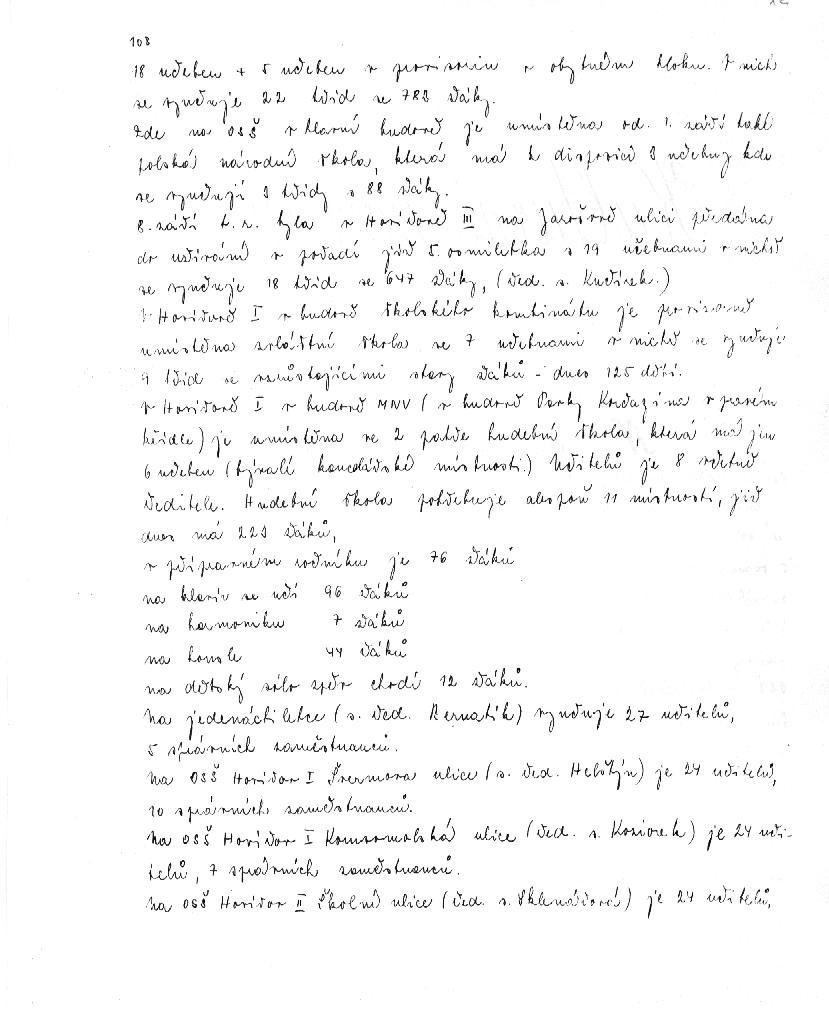 108
18 učeben + 5 učeben v provisoriu v obytném bloku. V nich
se vyučuje 22 tříd se 783 žáky.
Zde na OSŠ v hlavní budově je umístěna od. 1. září také
polská národní škola, která má k disposici 3 učebny kde
se vyučují 3 třídy s 88 žáky.
8. září t. r. byla v Havířově III na Jarošově ulici předána
do užívání v pořadí již 5. osmiletka s 19 učebnami v nichž
se vyučuje 18 tříd se 647 žáky, (řed. s. Kučírek.)
V Havířově I v budově školského kombinátu je provisorně
umístěna zvláštní škola se 7 učebnami v nichž se vyučuje
9 tříd se vzrůstajícími stavy žáků - dnes 125 dětí.
V Havířově I v budově MNV (v budově Parky Kordazína v pravém
křídle) je umístěna ve 2 patře hudební škola, která má jen
6 učeben (bývalé kancelářské místnosti.) Učitelů je 8 včetně
ředitele. Hudební škola potřebuje alespoň 11 místností, již
dnes má 223 žáků,
v přípravném ročníku je 76 žáků
na klavír se učí 96 žáků
na harmoniku 7 žáků
na housle 44 žáků
na dětský sólo zpěv chodí 12 žáků.
Na jedenáctiletce (s. řed. Bernatík) vyučuje 27 učitelů,
5 správních zaměstnanců.
Na OSŠ Havířov I Švermova ulice (s. řed. Helštýn) je 24 učitelů,
10 správních zaměstnanců.
Na OSŠ Havířov I Komsomolská ulice (řed. s. Kosiorek) je 24 uči-
telů, 7 správních zaměstnanců.
Na OSŠ Havířov II Školní ulice (řed. s. Sklenářová) je 24 učitelů,